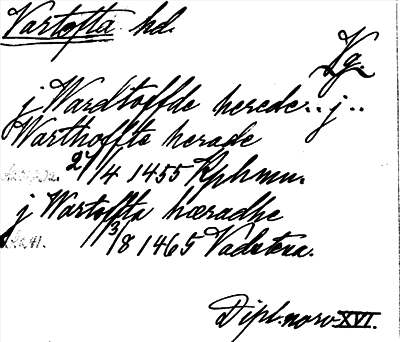 Vartofta hd.
Vg.
j Wardtoffde herede.. j..
Warthoffte herade
27/4 1455 Kphmn.
j Wartoffta hæradhe
3/8 1465 Vadstena.
Dipl. norv XVI.